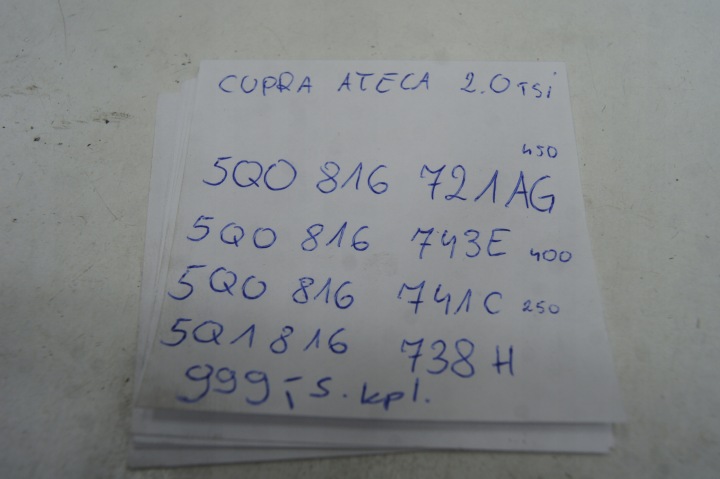 CUPRA ATECA 2.0 TSi
5Q0 816 721AG 450
5Q0 816 743E 400
5Q0 816 741C 250
5Q1 816 738H
999,- s. kpl.